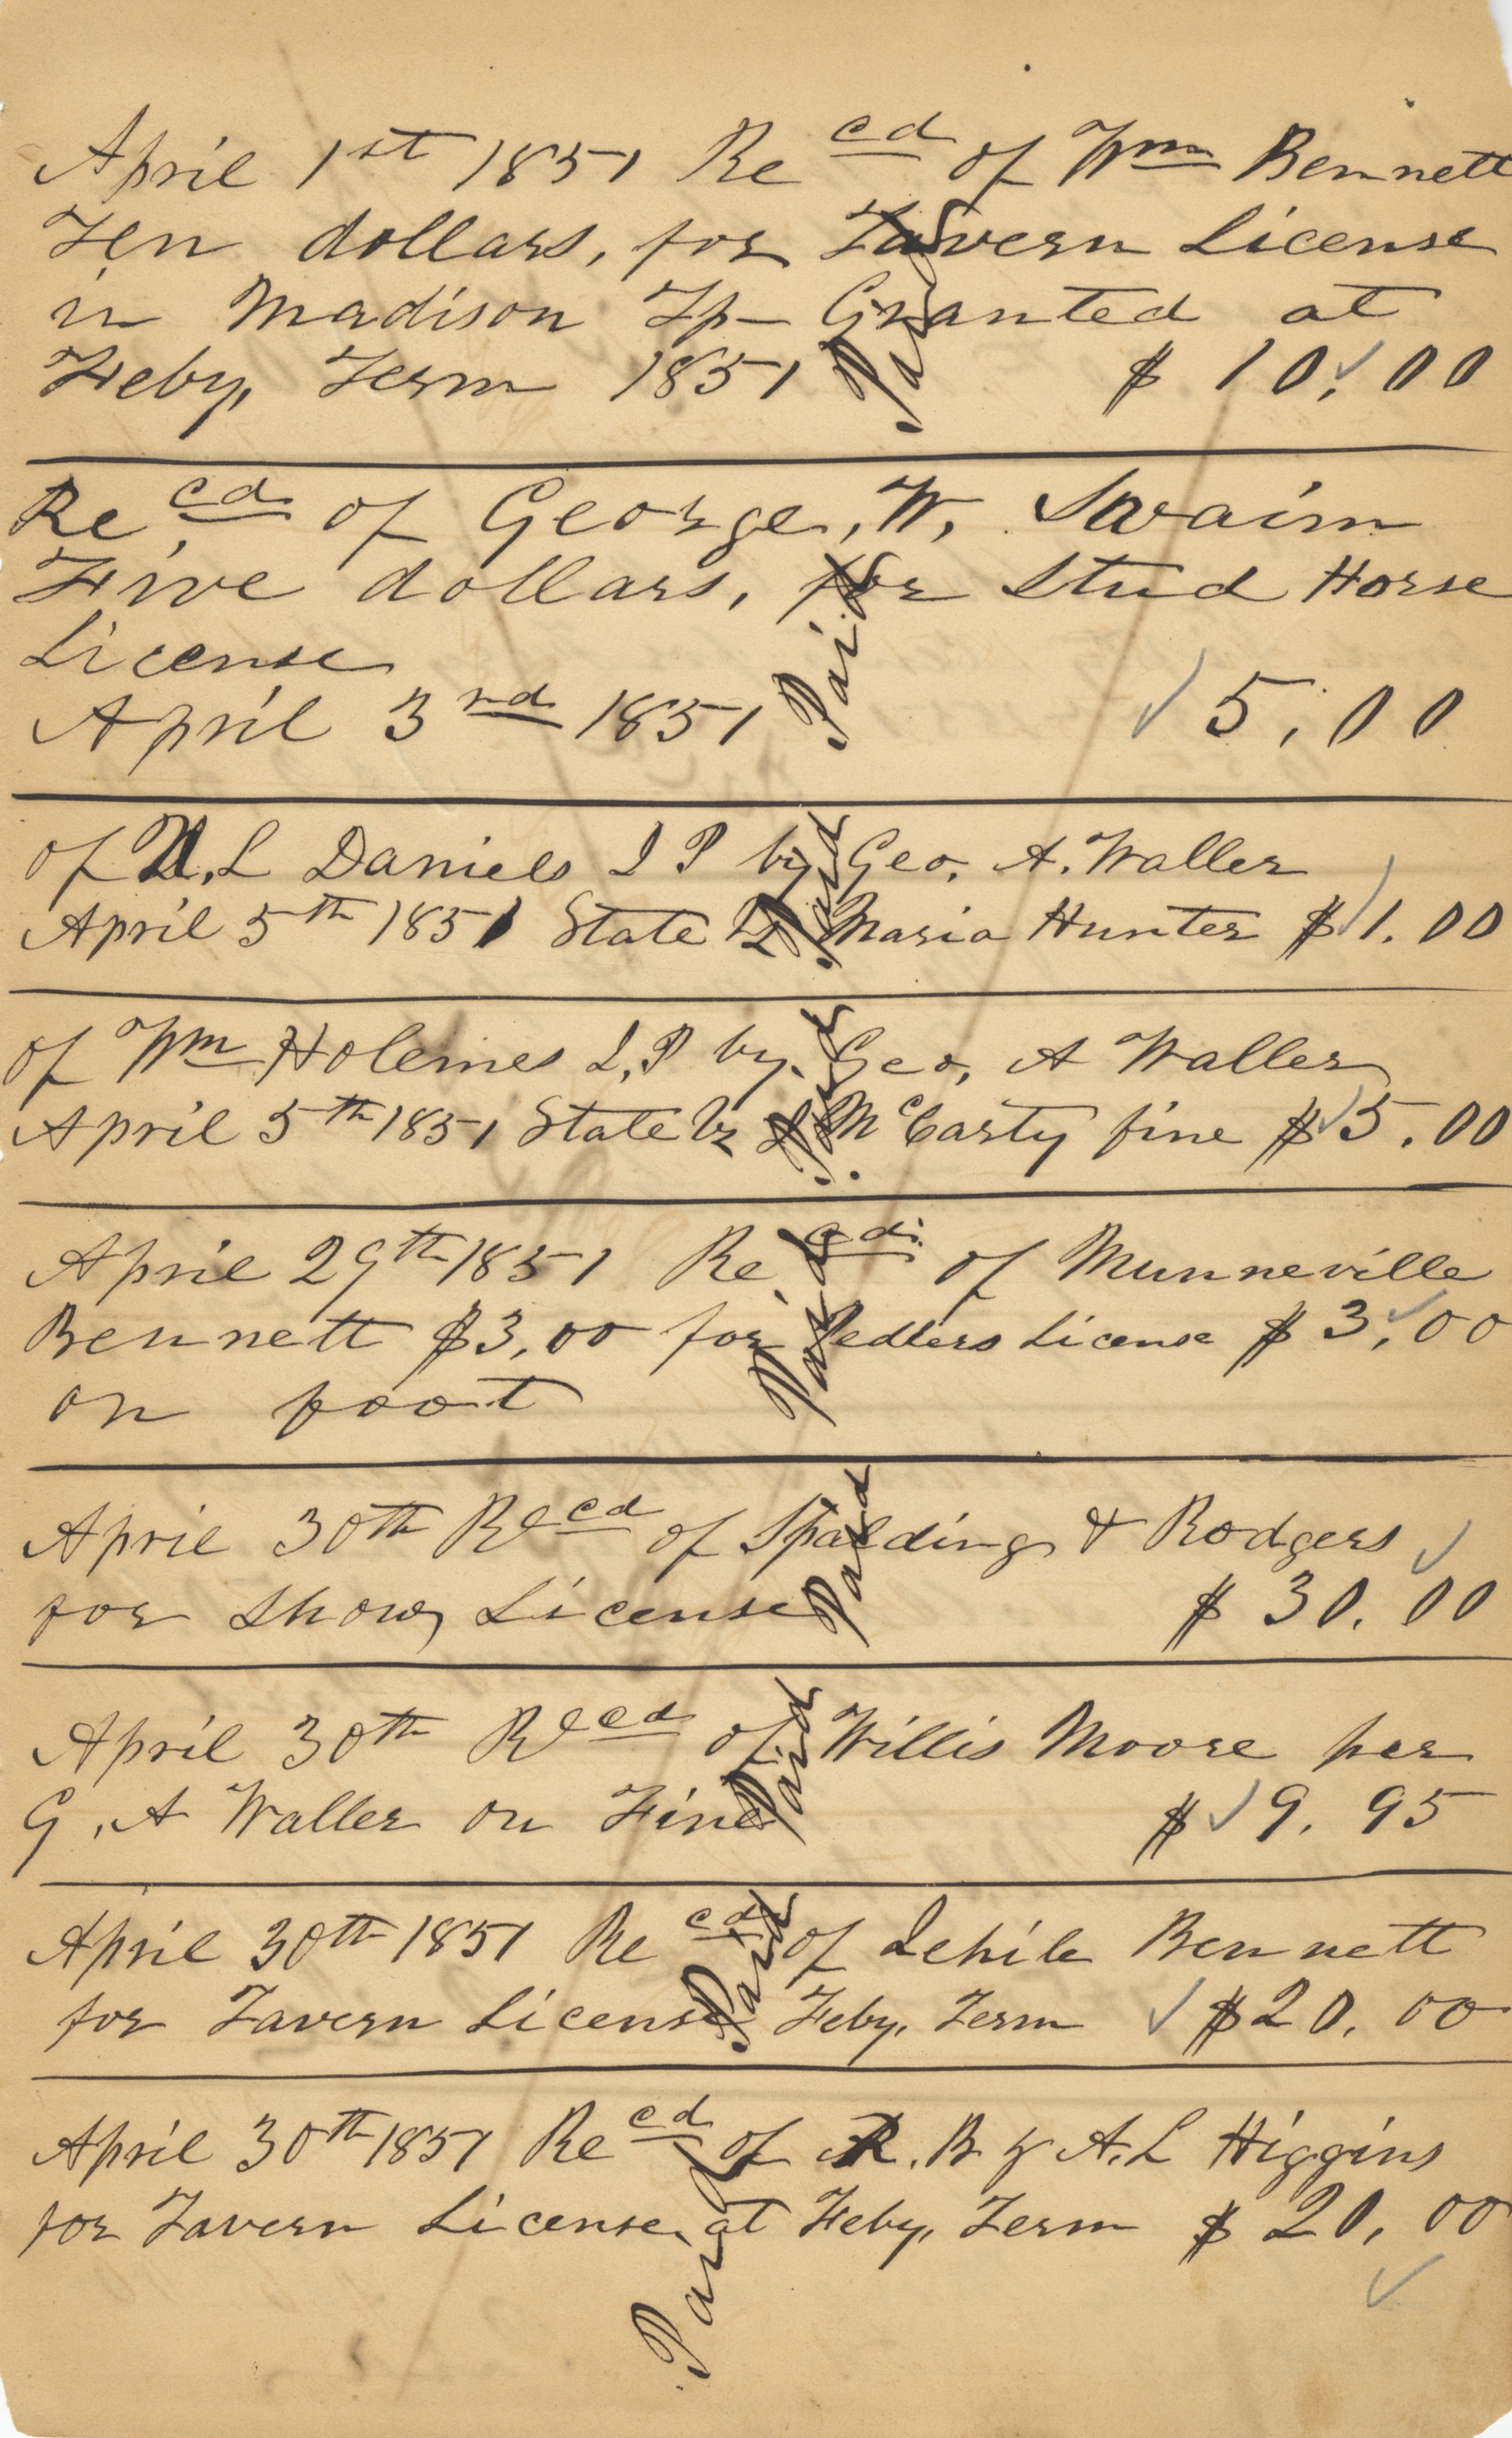 April 1st 1851 Recd of Wm Bennett
Ten dollars, for Tavern License
in Madison Tp- Granted at
Feby, Term 1851 $ 10,00
Paid
Recd of George, W, Swaim
Five dollars, for Stud Horse
License
April 3rd 1851 5,00
Paid
of L Daniels J P by Geo, A. Waller
April 5th 1851 State Vs Maria Hunter $1.00
Paid
of Wm Holemes J,P by. Geo, A Waller
April 5th 1851 State Vs McCarty fine $5.00
Paid
April 29th 1851 Recd. of Munneville
Bennett $3,00 for Pedlers License $3,00
on foot
Paid
April 30th Recd of Spalding & Rodgers
for Show, License $ 30.00
Paid
April 30th Recd of Willis Moore per
G, A Waller on Fine $ 9.95
Paid
April 30th 1851 Recd of Bennett
for Tavern License Feby, Term $20.00
Paid
April 30th 1851 Recd of R. B & A. L Higgins
for Tavern License, at Feby, Term $ 20,00
Paid